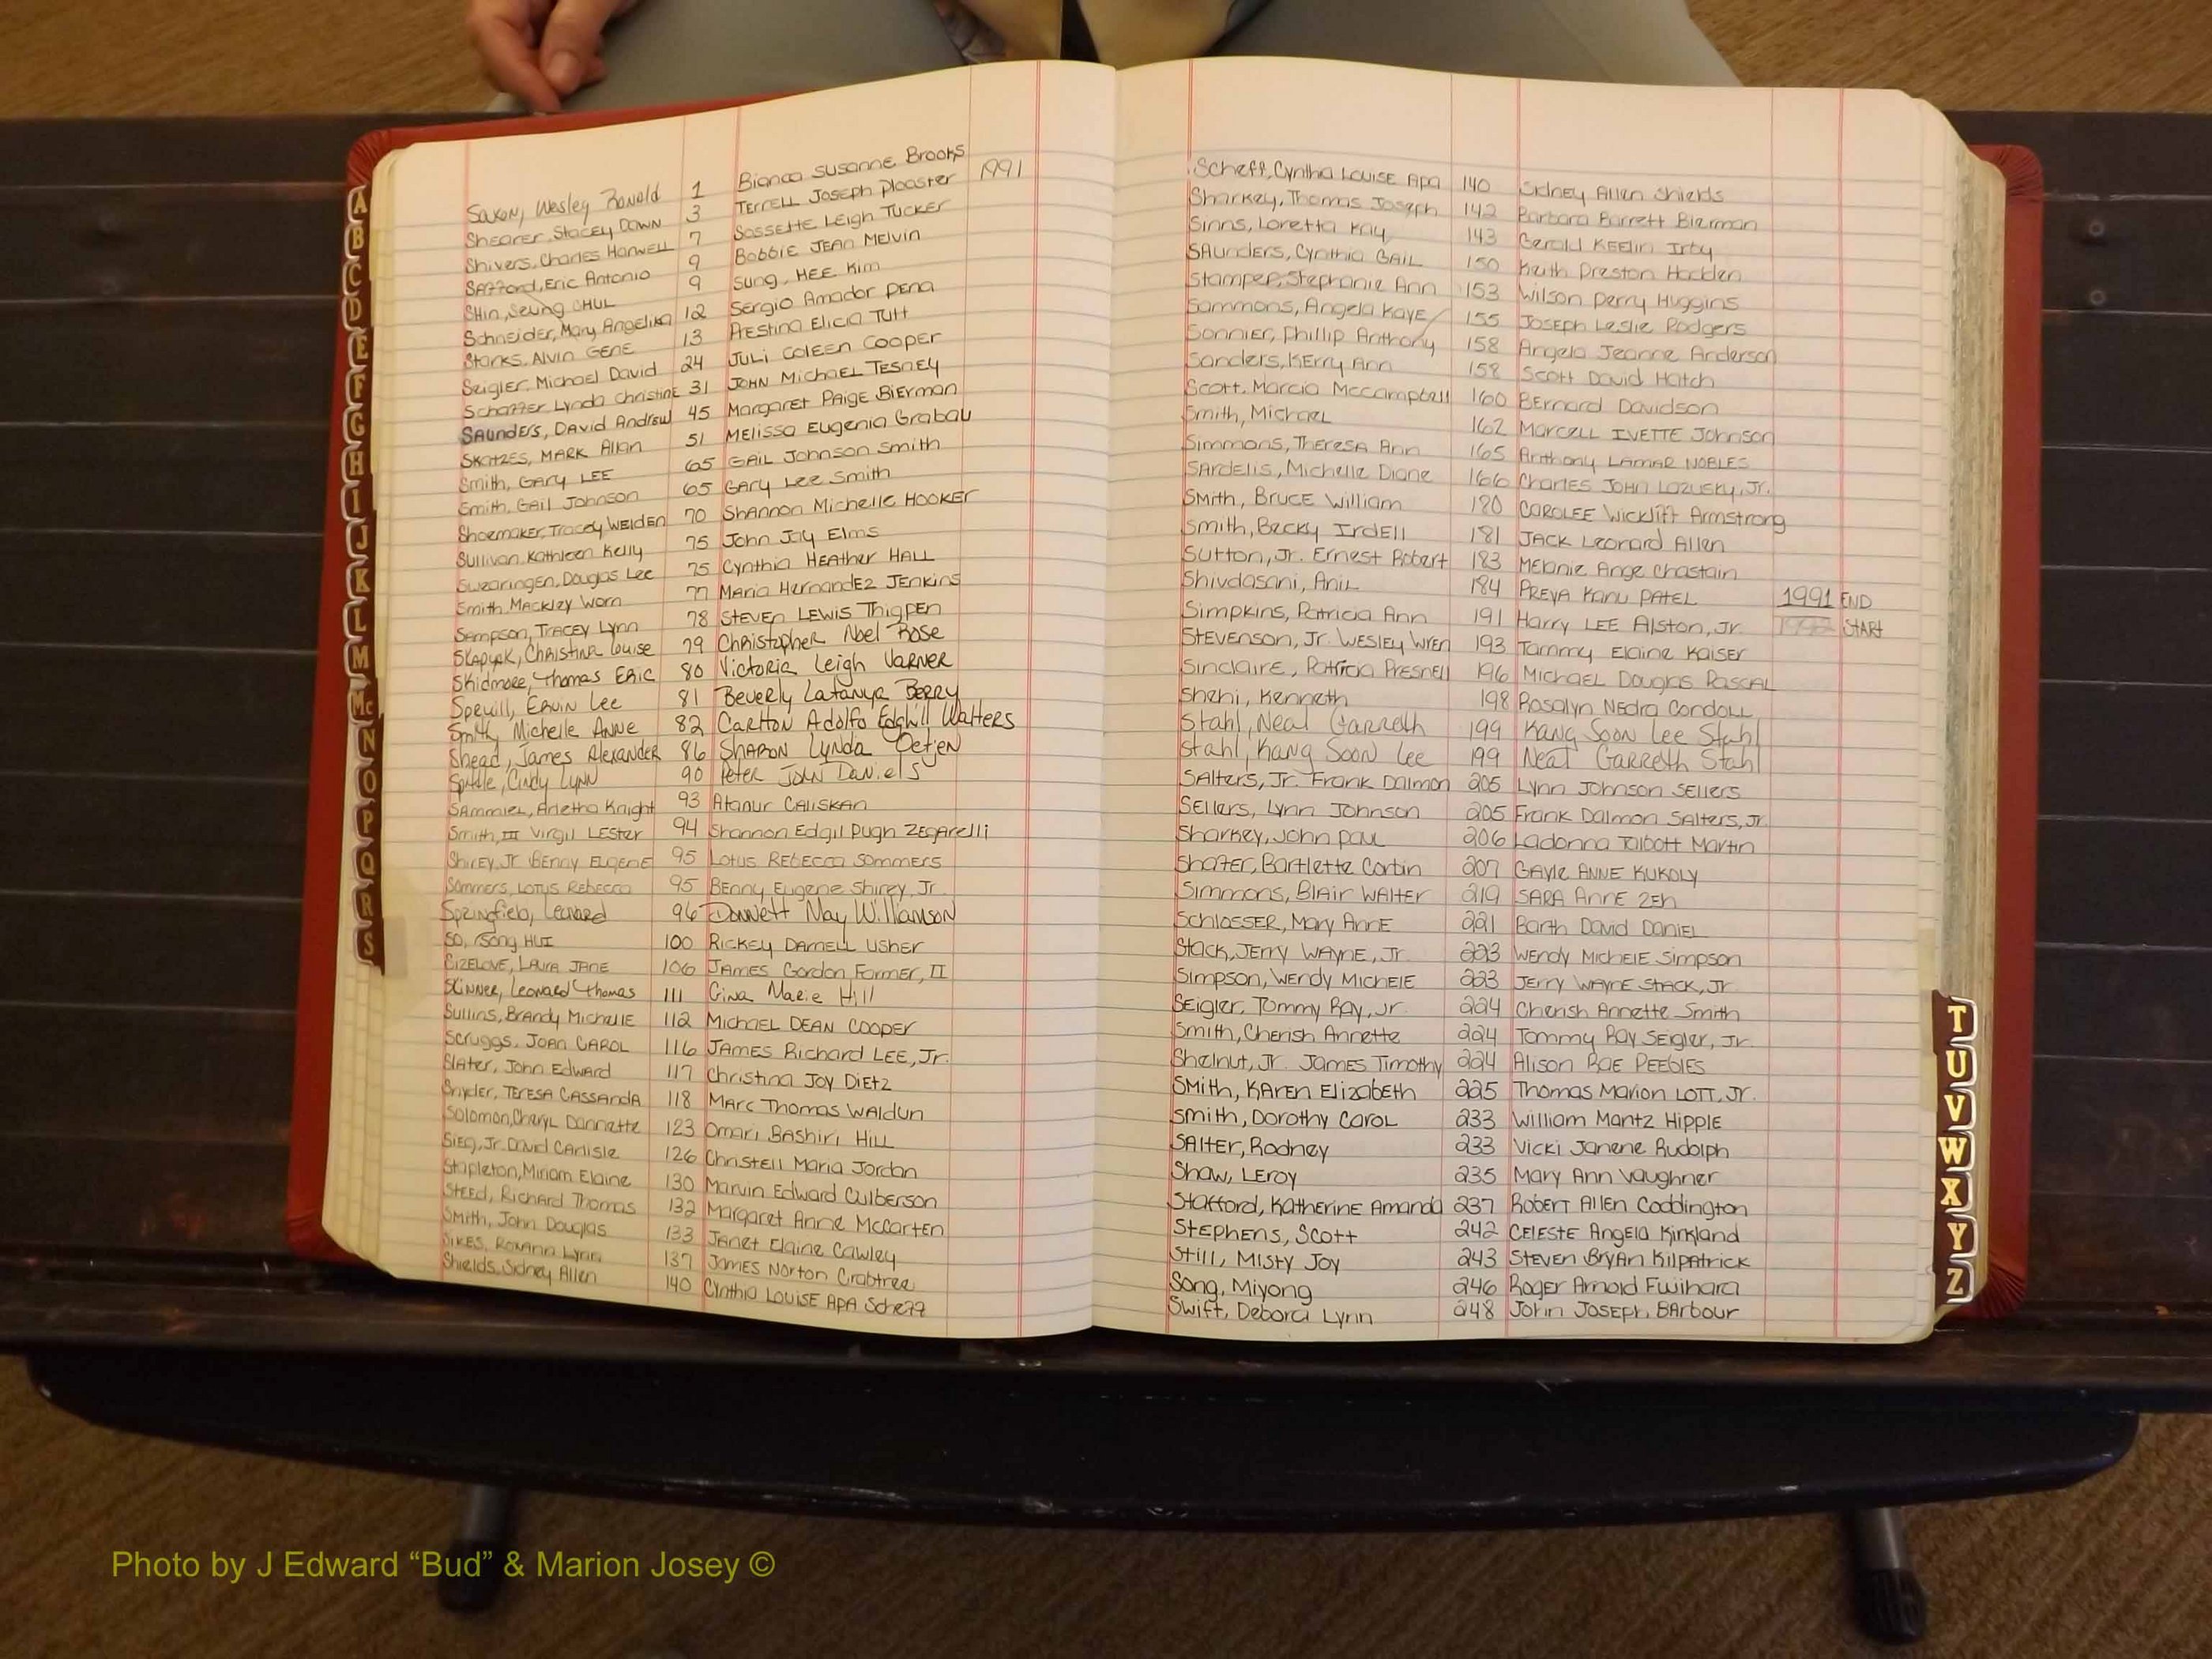 Saxon, Wesley Ronald 1 Bianca Susanne Brooks
Shearer, Stacey Dawn 3 Terrell Joseph Ploaster 1991
Shivers, Charles Harwell 7 Sossette Leigh Tucker
Safford, Eric Antonio 9 Bobbie Jean Melvin
Shin, Seung Chul 9 Sung, Hee Kim
Schneider, Mary Angelika 12 Sergio Amador Pena
Starks, Alvin Gene 13 Prestina Elicia Tutt
Seigler, Michael David 24 Juli Coleen Cooper
Schaffer, Lynda Christine 31 John Michael Tesney
Saunders, David Andrew 45 Margaret Paige Bierman
Skatzes, Mark Allan 51 Melissa Eugenia Grabau
Smith, Gary Lee 65 Gail Johnson Smith
Smith, Gail Johnson 65 Gary Lee Smith
Shoemaker, Tracey Welden 70 Shannon Michelle Hooker
Sullivan, Kathleen Kelly 75 John Jay Elms
Swearingen, Douglas Lee 75 Cynthia Heather Hall
Smith, Mackley Worn 77 Maria Hernandez Jenkins
Sampson, Tracey Lynn 78 Steven Lewis Thigpen
Skapyak, Christina Louise 79 Christopher Noel Rose
Skidmore, Thomas Eric 80 Victoria Leigh Varner
Spruill, Ervin Lee 81 Beverly Latanya Berry
Smith, Michelle Anne 82 Carlton Adolfo Edghill Walters
Shead, James Alexander 86 Sharon Lynda Oetjen
Cindy Lynn 90 Peter John Daniels
Sammiel, Arletha Knight 93 Atanur Caliskan
Smith, III Virgil Lester 94 Shannon Edgil Pugh Zegarelli
Shirey, Jr Benny Eugene 95 Lotus Rebecca Sommers
Sommers, Lotus Rebecca 95 Benny Eugene Shirey, Jr.
Springfield, Leonard 96 Donnett May Williamson
So, Song Hui 100 Rickey Darnell Usher
Sizelove, Laura Jane 106 James Gordon Farmer, II
Skinner, Leonard Thomas 111 Gina Marie Hill
Sullins, Brandy Michelle 112 Michael Dean Cooper
Scruggs, Joan Carol 116 James Richard Lee, Jr.
Slater, John Edward 117 Christina Joy Dietz
Snyder, Teresa Cassanda 118 Marc Thomas Waldun
Solomon, Cheryl Dannette 123 Omari Bashiri Hill
Sieg, Jr. David Carlisle 126 Christell Maria Jordan
Stapleton, Miriam Elaine 130 Marvin Edward Culberson
Steed, Richard Thomas 132 Margaret Anne McCarten
Smith, John Douglas 133 Janet Elaine Cawley
Sikes, Roxann Lynn 137 James Norton Crabtree
Shields, Sidney Allen 140 Cynthia Louise Apa Scheff
Scheff, Cynthia Louise Apa 140 Sidney Allen Shields
Sharkey, Thomas Joseph 142 Barbara Barrett Bierman
Sinns, Loretta Kay 143 Gerald Keelin Irby
Saunders, Cynthia Gail 150 Keith Preston Hadden
Stamper, Stephanie Ann 153 Wilson Perry Huggins
Sammons, Angela Kaye 155 Joseph Leslie Rodgers
Sonnier, Phillip Anthony 158 Angela Jeanne Anderson
Sanders, Kerry Ann 158 Scott David Hatch
Scott, Marcia McCampbell 160 Bernard Davidson
Smith, Michael 162 Marcell Ivette Johnson
Simmons, Theresa Ann 165 Anthony Lamar Nobles
Sardelis, Michelle Diane 166 Charles John Lozusky, Jr.
Smith, Bruce William 180 Carolee Wickliff Armstrong
Smith, Becky Irdell 181 Jack Leonard Allen
Sutton, Jr. Ernest Robert 183 Melanie Ange Chastain
Shivdasani, Anil 184 Preya Kanu Patel 1991 END
Simpkins, Patricia Ann 191 Harry Lee Alston, Jr. 1992 START
Stevenson, Jr. Wesley Wren 193 Tammy Elaine Kaiser
Sinclaire, Patricia Presnell 196 Michael Douglas Pascal
Shehi, Kenneth 198 Rosalyn Nedra Condoll
Stahl, Neal Garreth 199 Kang Soon Lee Stahl
Stahl, Kang Soon Lee 199 Neal Garreth Stahl
Salters, Jr. Frank Dalmon 205 Lynn Johnson Sellers
Sellers, Lynn Johnson 205 Frank Dalmon Salters, Jr.
Sharkey, John Paul 206 Ladonna Talbott Martin
Shafer, Bartlette Corbin 207 Gayle Anne Kukoly
Simmons, Blair Walter 219 Sara Anne Zeh
Schlosser, Mary Anne 221 Barth David Daniel
Stack, Jerry Wayne, Jr. 223 Wendy Michele Simpson
Simpson, Wendy Michele 223 Jerry Wayne Stack, Jr.
Seigler, Tommy Ray, Jr. 224 Cherish Annette Smith
Smith, Cherish Annette 224 Tommy Ray Seigler, Jr.
Shelnut, Jr. James Timothy 224 Alison Rae Peebles
Smith, Karen Elizabeth 225 Thomas Marion Lott, Jr.
Smith, Dorothy Carol 233 William Mantz Hipple
Salter, Rodney 233 Vicki Janene Rudolph
Shaw, Leroy 235 Mary Ann Vaughner
Stafford, Katherine Amanda 237 Robert Allen Coddington
Stephens, Scott 242 Celeste Angela Kirkland
Still, Misty Joy 243 Steven Bryan Kilpatrick
Song, Miyong 246 Roger Arnold Fujihara
Swift, Debora Lynn 248 John Joseph Barbour
A
B
C
D
E
F
G
H
I
J
K
L
M
Mc
N
O
P
Q
R
S
T
U
V
W
X
Y
Z
Photo by J Edward “Bud” & Marion Josey ©